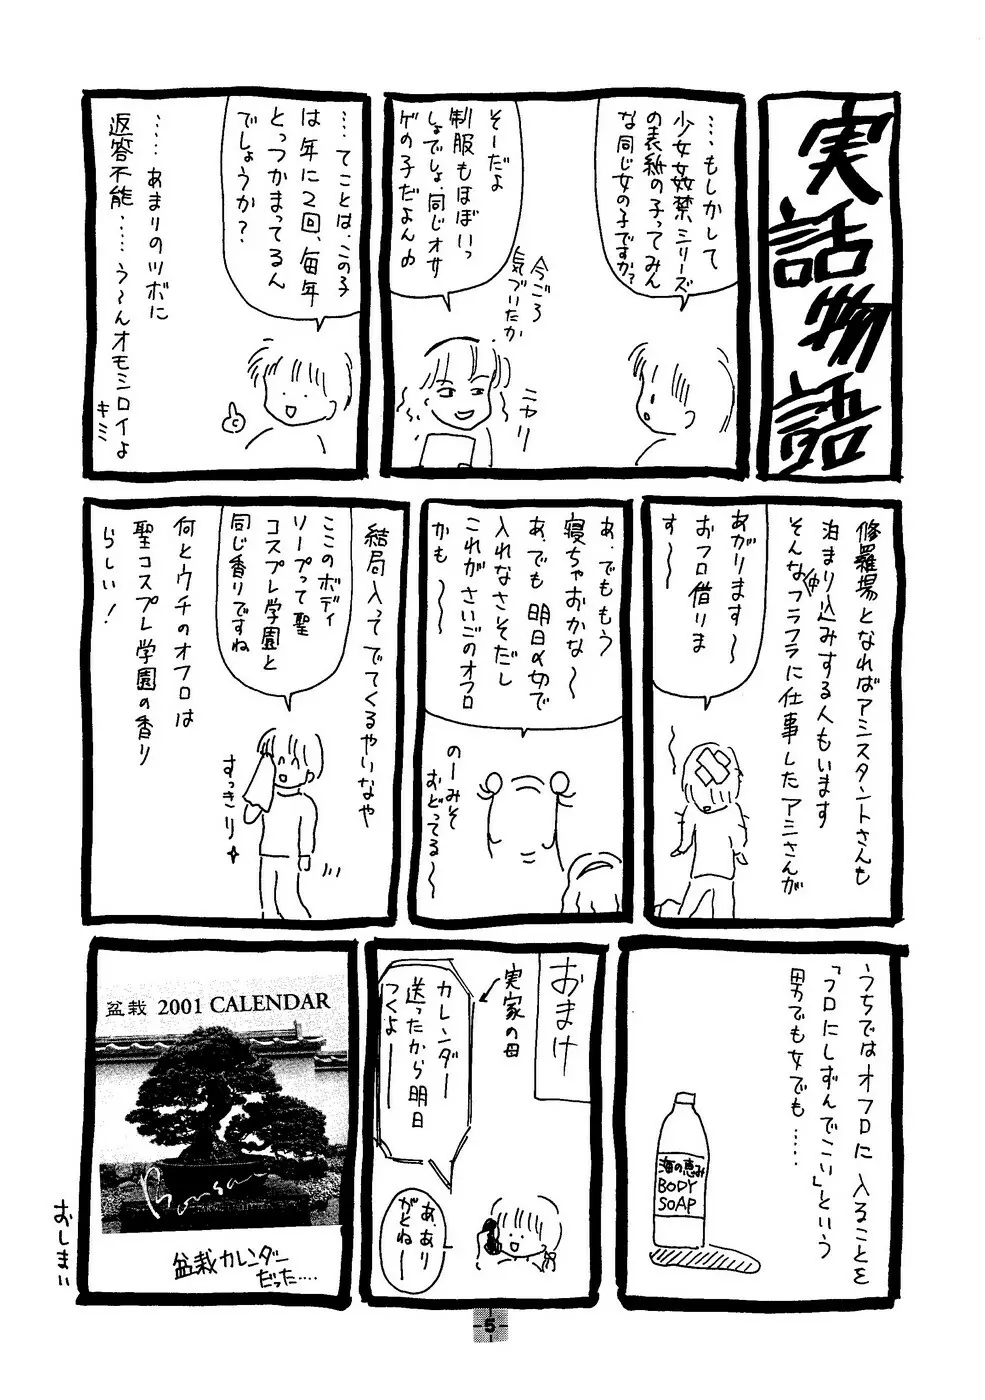 実話物語
……もしかして
少女姦禁シリーズ
の表紙の子ってみん
な同じ女の子ですか?
今ごろ
気づいたか
ニヤリ
そーだよ
制服もほぼいっ
しょでしょ、同じオサ
ゲの子だよん♪
……てことは、この子
は年に2回、毎年
とっつかまってるん
でしょうか?
……あまりのツボに
返答不能……う〜んオモシロイよ
キミ
修羅場となればアシスタントさんも
泊まり込みする人もいます
そんな中フラフラに仕事したアシさんが
あがります〜
おフロ借りま
す〜
あ、でももう
寝ちゃおかな〜
あ、でも明日〆切で
入れなさそだし
これがさいごのオフロ
かも〜
のーみそ
おどってる〜
結局入ってでてくるやいなや
ここのボディ
ソープって聖
コスプレ学園と
同じ香りですね
すっきり
何とウチのオフロは
聖コスプレ学園の香り
らしい!
うちではオフロに入ることを
「フロにしずんでこい」という
男でも女でも……
海の恵み
BODY
SOAP
おまけ
実家の母
カレンダー
送ったから明日
つくよ――
あ、あり
がとねー
盆栽 2001 CALENDAR
Bonsai
盆栽カレンダー
だった……
おしまい
5